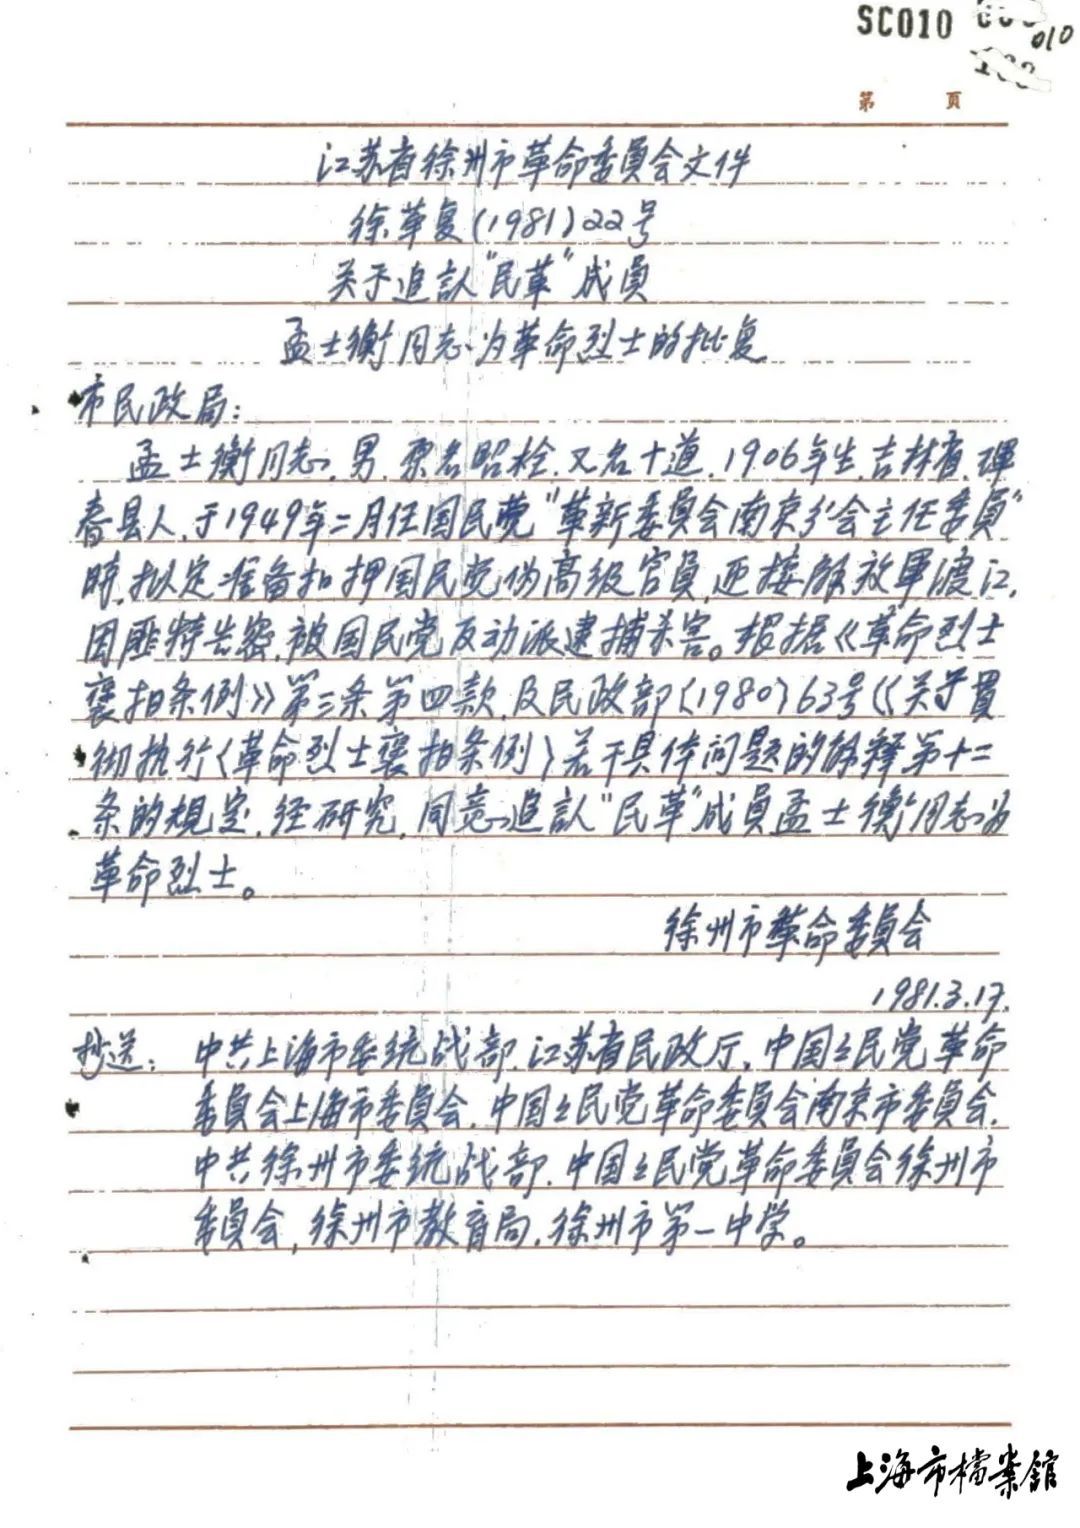 SC010
010
第 頁
江苏省徐州市革命委員会文件
徐革复(1981)22号
关于追認"民革"成員
孟士衡同志为革命烈士的批复
市民政局:
孟士衡同志,男,原名昭栓,又名十道,1906年生,吉林省,琿
春县人,于1949年二月任国民党"革新委員会南京分会主任委員"
時,拟定准备扣押国民党伪高级官員,迎接解放軍渡江,
因匪特告密,被国民党反动派逮捕杀害。根据《革命烈士
褒扬条例》第三条第四款,及民政部(1980)63号《关于貫
彻执行〈革命烈士褒扬条例〉若干具体问题的解釋第十二
条的規定,经研究,同意追認"民革"成員孟士衡同志为
革命烈士。
徐州市革命委員会
1981.3.17.
抄送:中共上海市委统战部,江苏省民政厅,中国国民党革命
委員会上海市委員会,中国国民党革命委員会南京市委員会,
中共徐州市委统战部,中国国民党革命委員会徐州市
委員会,徐州市教育局,徐州市第一中学。
上海市檔案館